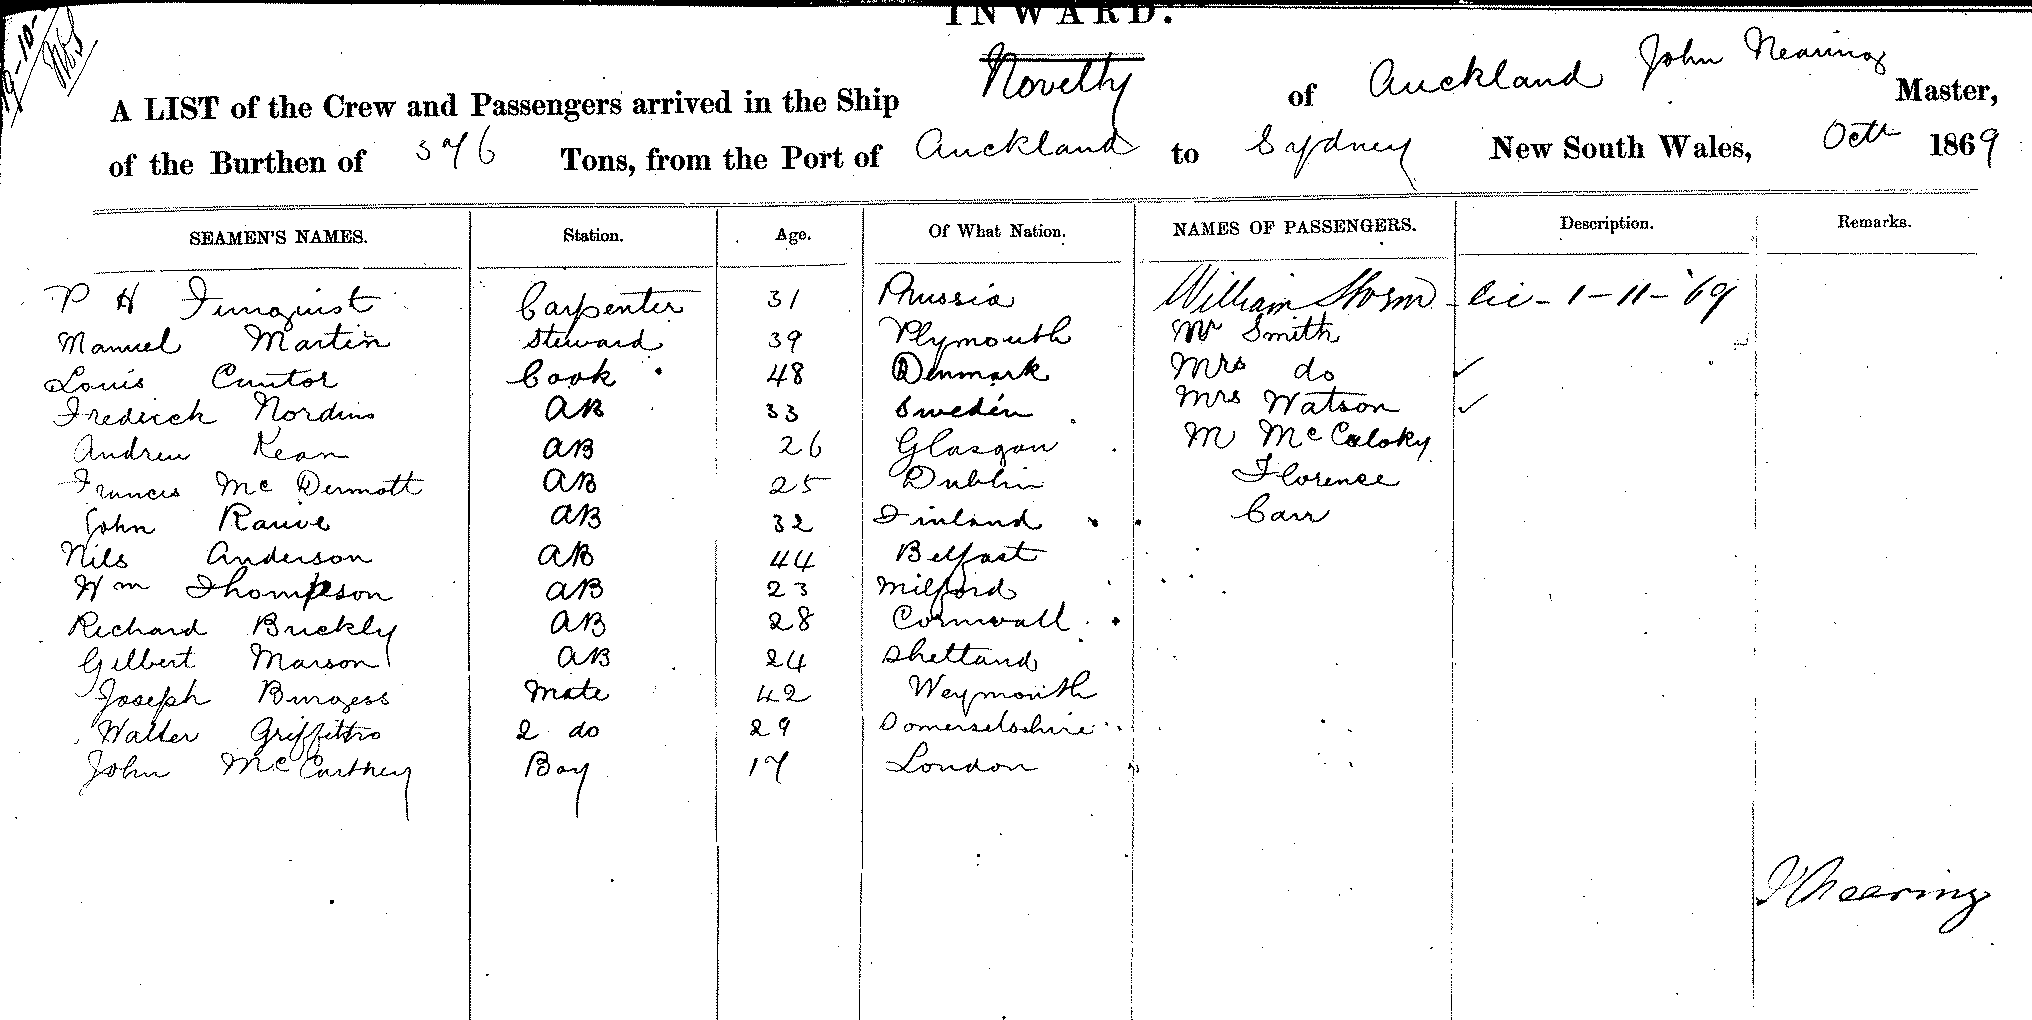 INWARD.
19-10-
A LIST of the Crew and Passengers arrived in the Ship Novelty of Auckland John Nearing Master,
of the Burthen of 376 Tons, from the Port of Auckland to Sydney New South Wales, Octr 1869
SEAMEN'S NAMES. Station. Age. Of What Nation. NAMES OF PASSENGERS. Description. Remarks.
P H Carpenter 31 Prussia William Storm - lic - 1-11-'69
Manuel Martin Steward 39 Plymouth Mr Smith
Louis Cook 48 Denmark Mrs do ✓
Frederick Nordins AB 33 Sweden Mrs Watson ✓
Andrew Kean AB 26 Glasgow M McCaloky
Frances Mc Dermott AB 25 Dublin Florence
John AB 32 Finland Carr
Nils Anderson AB 44 Belfast
Wm Thompson AB 23 Milford
Richard Buckly AB 28 Cornwall
Gilbert Manson AB 24 Shetland
Joseph Burgess Mate 42 Weymouth
Walter Griffiths 2 do 29 Somersetshire
John McCarthey Boy 17 London
J Nearing